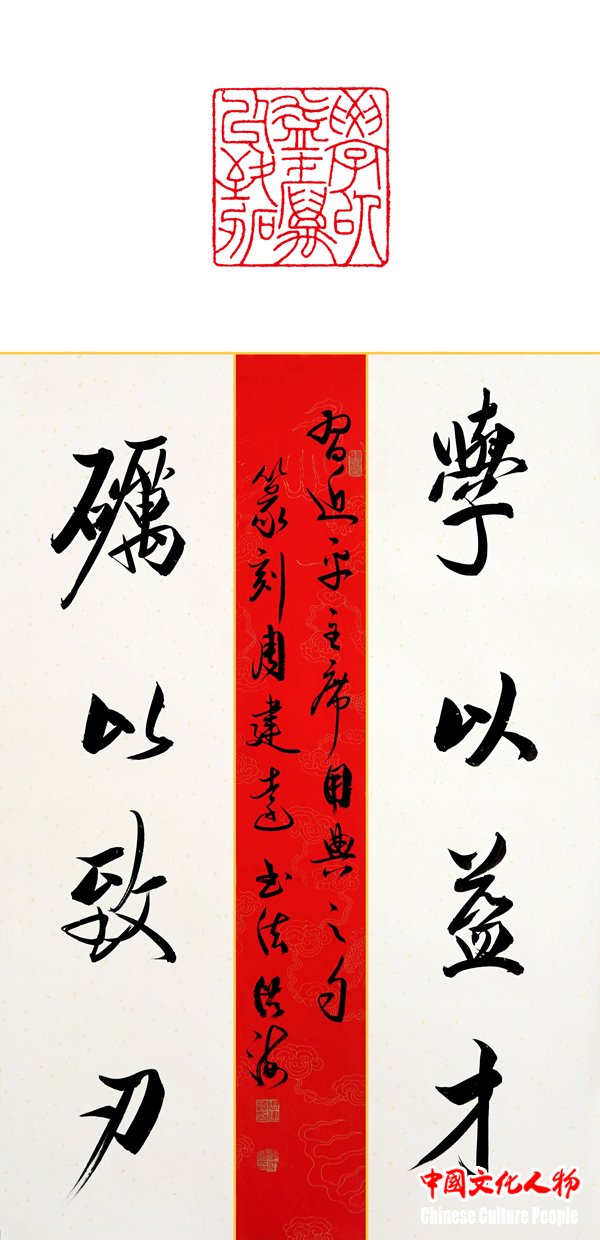 學以益才
習近平主席用典之句
篆刻周建 书法洪海
礪以致刃
中國文化人物
Chinese Culture People